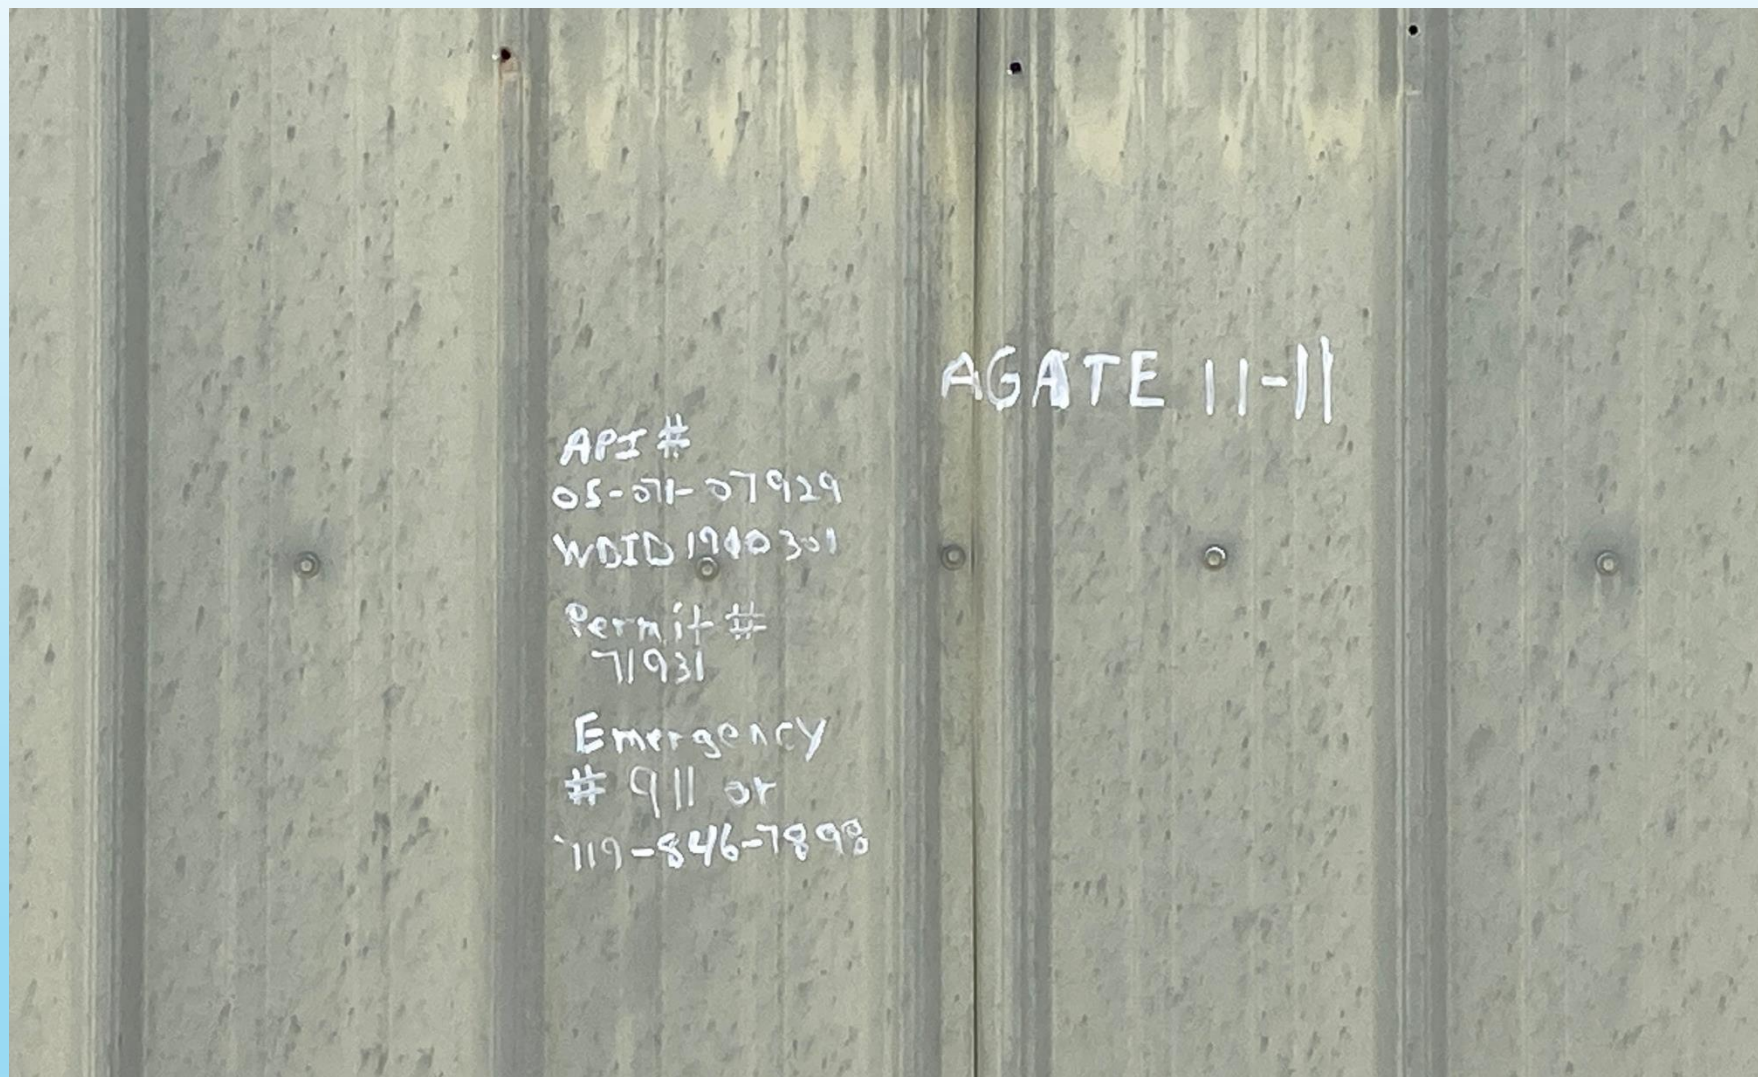 AGATE 11-11
API #
05-071-07929
WDID
Permit #
71931
Emergency
# 911 or
719-846-7898